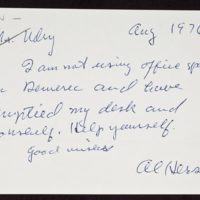 Aug 1976
I am not using office sp
Demerec and have
emptied my desk and
Help yourself.
Good wishes
Al Hers